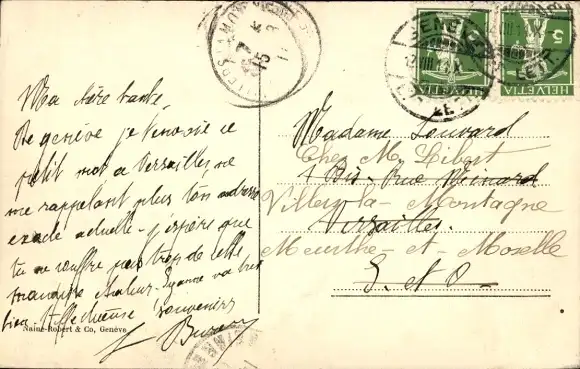 Ma chère tante,
De genève je t'envoie ce
petit mot a Versailles ne
me rappelant plus ton adresse
exacte actuelle - j'espère que
tu ne souffre pas trop de cette
chaleur. va très
bien. Affectueux souvenirs
Naine-Robert & Co, Genève
GENÈVE
LETT.
5
5
HELVETIA
HELVETIA
Madame Louvard
Chez M. Libert
4 Bis Rue Meinard
Villers-la-Montagne
Versailles
Meurthe-et-Moselle
S. et O.